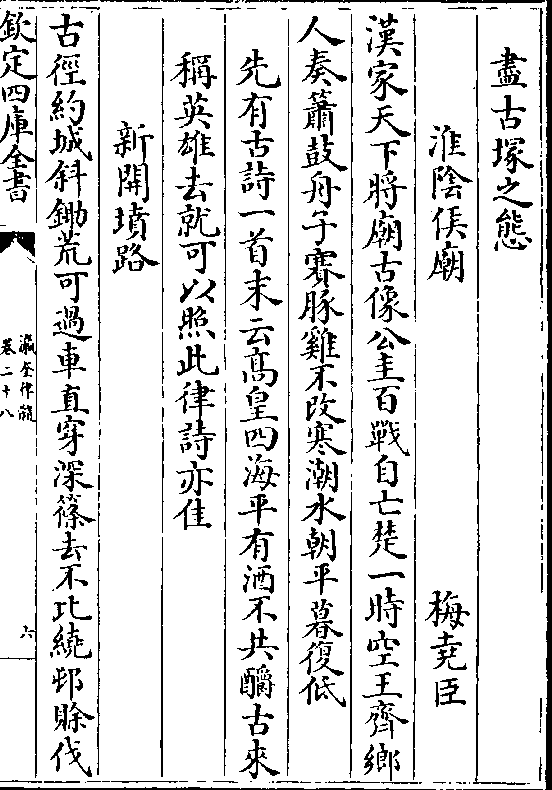 盡古塚之態
淮陰侯廟　梅堯臣
漢家天下將廟古像公圭百戰自亡楚一時空王齊鄉
人奏簫鼓舟子賽豚雞不改寒潮水朝平暮復低
先有古詩一首末云高皇四海平有酒不共釂古來
稱英雄去就可以照此律詩亦佳
新開墳路
古徑約城斜鋤荒可過車直穿深篠去不比繞邨賖伐
欽定四庫全書
瀛奎律髓
卷二十八
六